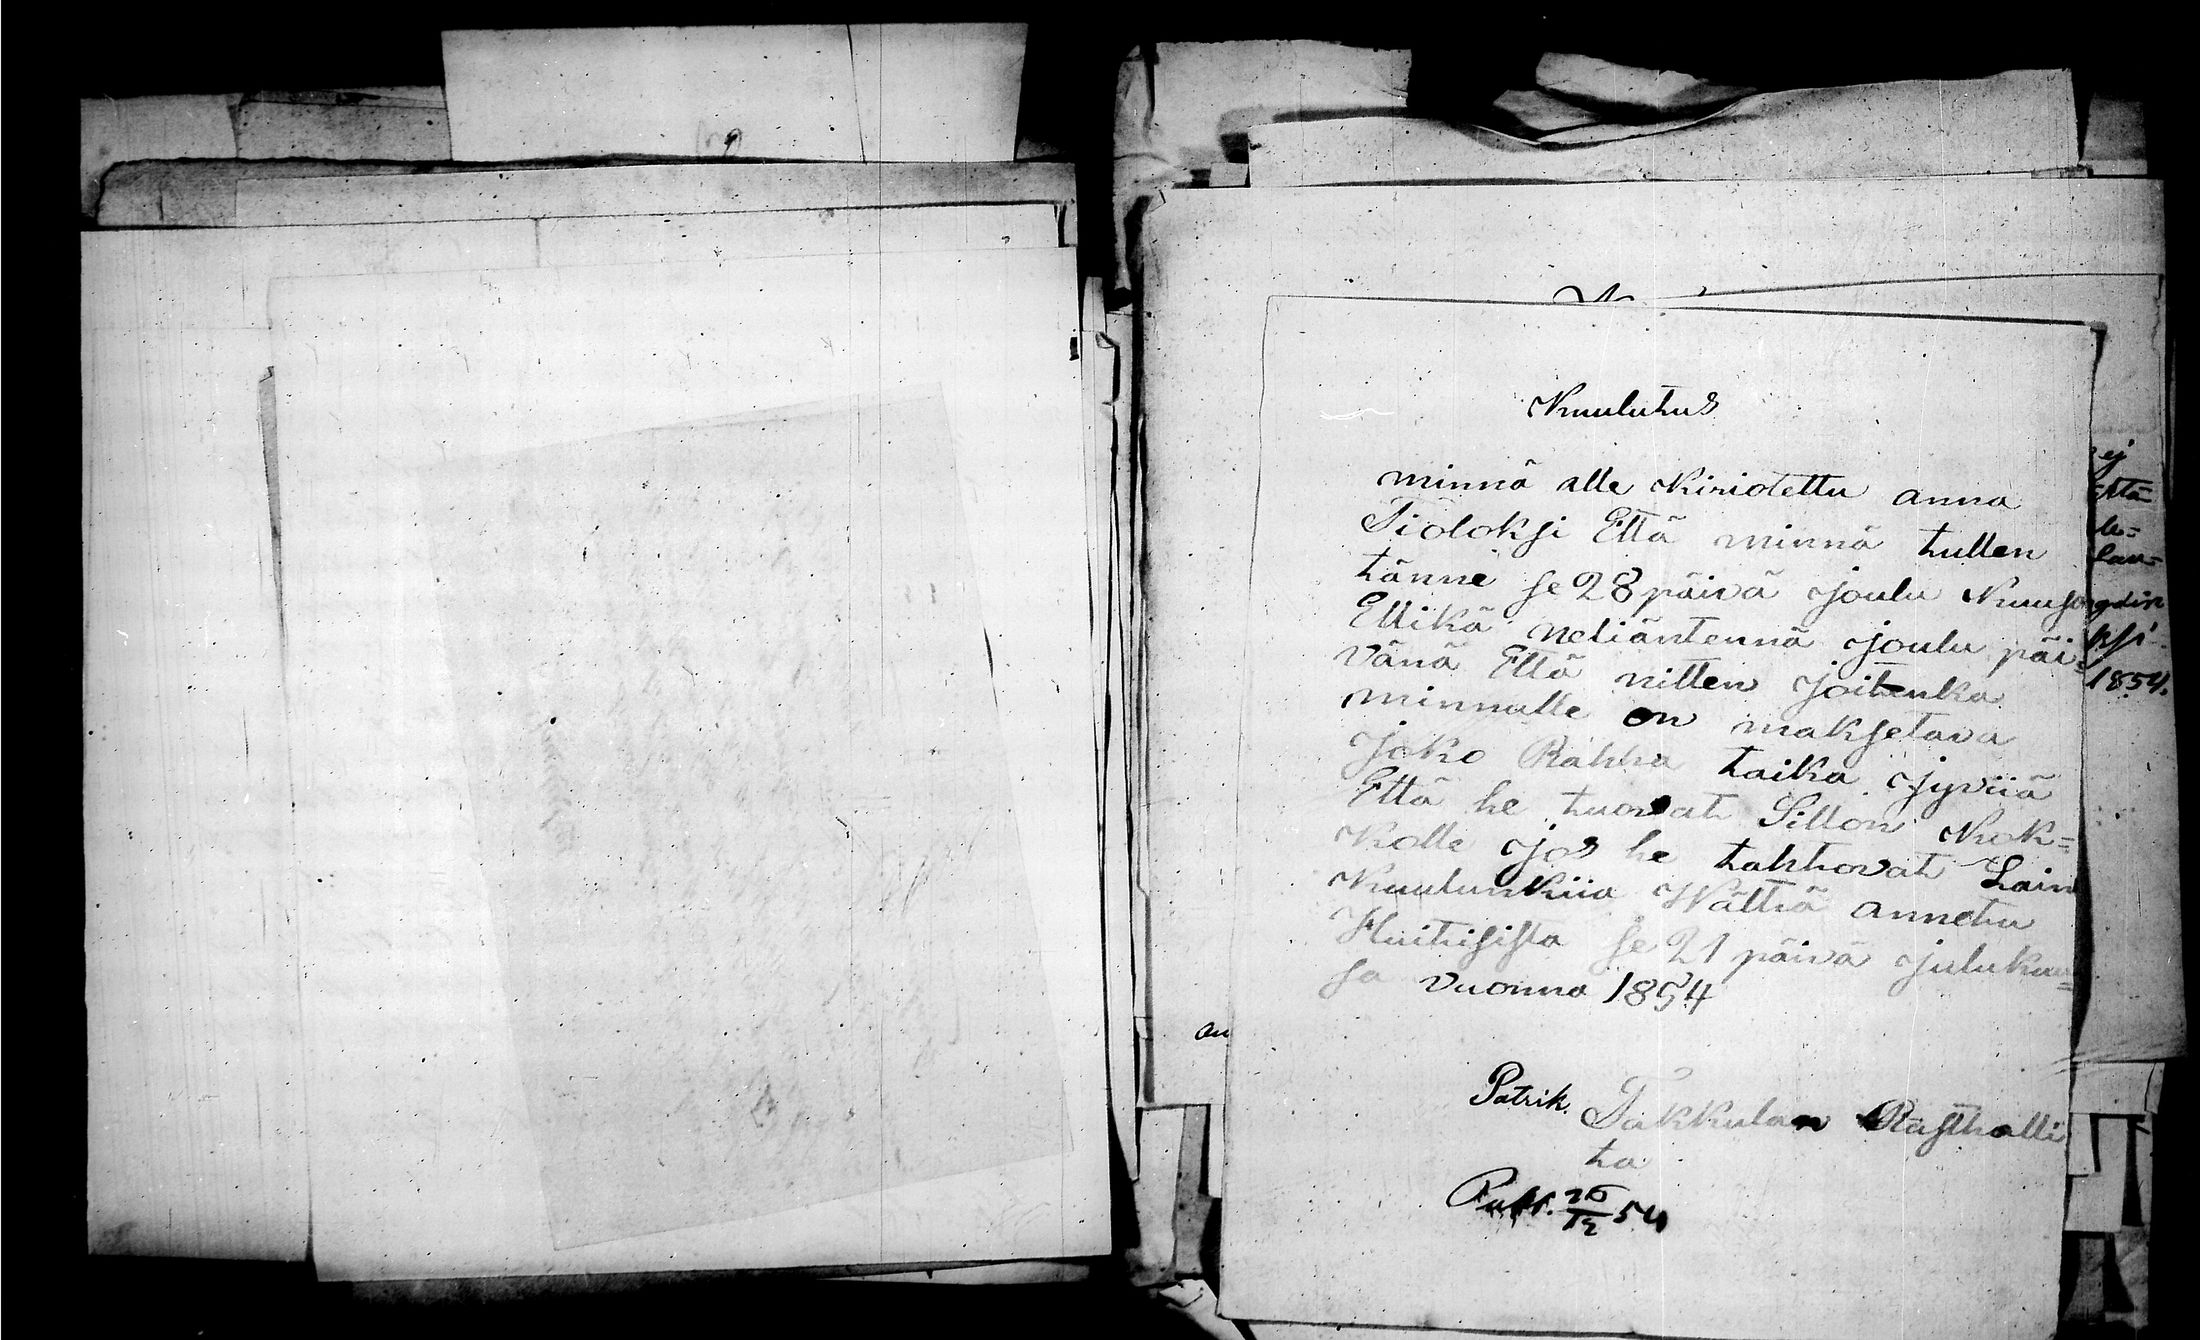 Kuulutus
minnä alle Kiriotettu anna
Tioloksi Että minnä tullen
tänne se 28 päivä joulu Kuusa
Ellikä neliäntennä joulu päi=
vänä Että nitten joitenka
minnulle on maksetava
joko Rahha taika jyviiä
Että he tuovat Sillon Kok=
Kolle jos he tahtovat Lain
Kuulunkiia Wälttiä annettu
Huitisista se 21 päivä julukuu=
sa vuonna 1854
Patrik. Takkulan Rästhalli
ta
Publ. 26/12 54
ej
että
ksi
1854.